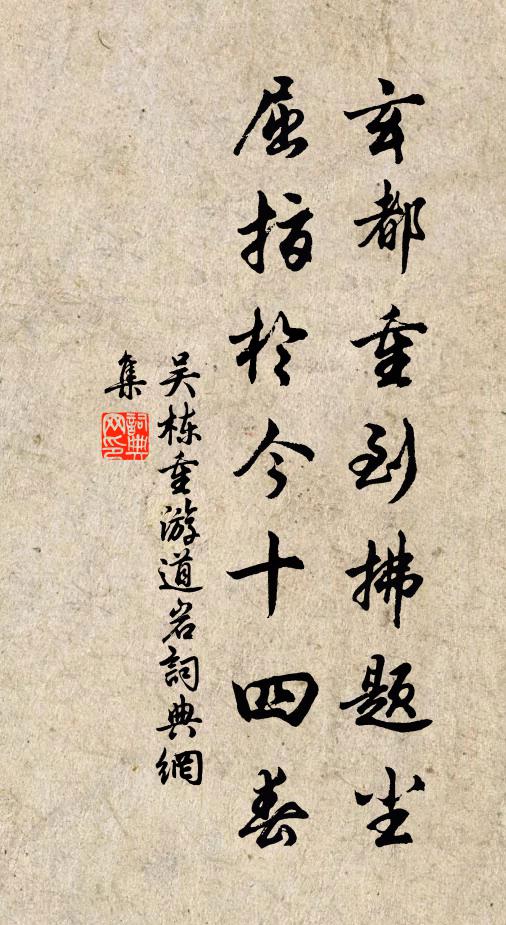 玄都重到拂题尘
屈指於今十四春
吴栋重游道岩詞典網
集
詞典網印